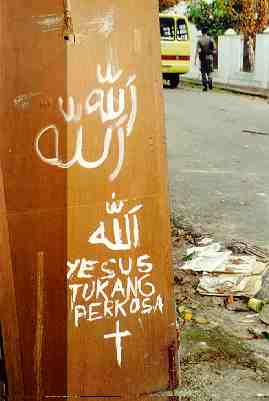 الله
الله
الله
YESUS
TUKANG
PERKOSA